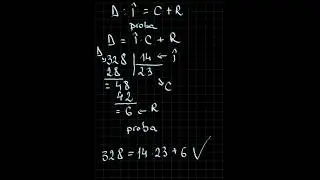 D : Î = C + R
proba
D = Î · C + R
D 328 | 14 ← Î
28 | 23
= 48 ↘ C
42
= 6 ← R
proba
328 = 14 · 23 + 6 ✓